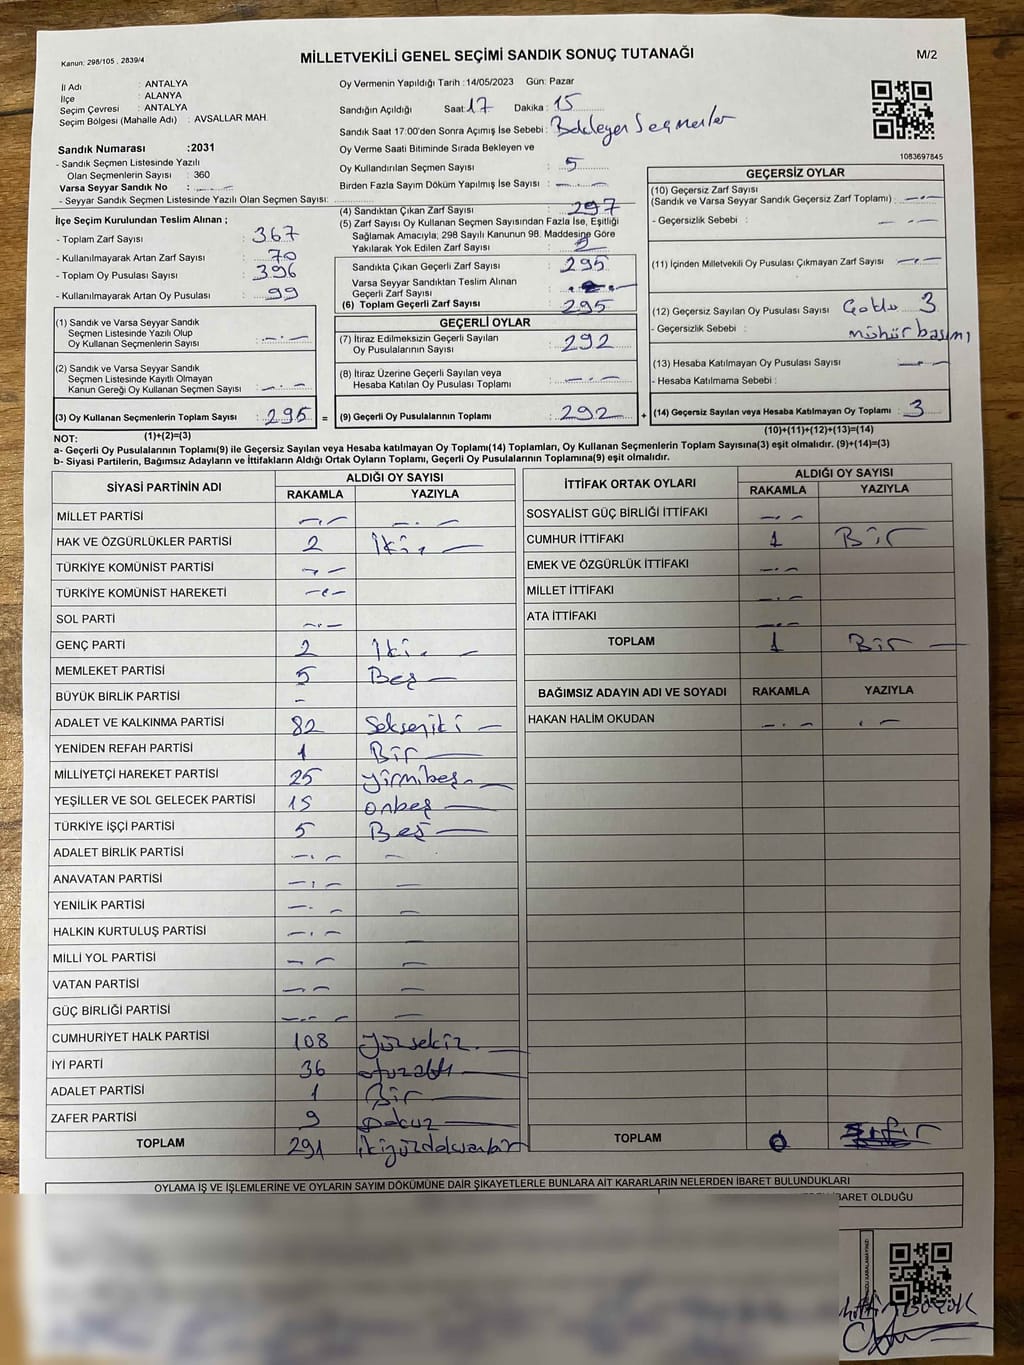 Kanun: 298/105 , 2839/4
MİLLETVEKİLİ GENEL SEÇİMİ SANDIK SONUÇ TUTANAĞI
M/2
İl Adı : ANTALYA
İlçe : ALANYA
Seçim Çevresi : ANTALYA
Seçim Bölgesi (Mahalle Adı) : AVSALLAR MAH.
Sandık Numarası :2031
- Sandık Seçmen Listesinde Yazılı
Olan Seçmenlerin Sayısı : 360
Varsa Seyyar Sandık No : - . -
- Seyyar Sandık Seçmen Listesinde Yazılı Olan Seçmen Sayısı:
Oy Vermenin Yapıldığı Tarih :14/05/2023 Gün: Pazar
Sandığın Açıldığı Saat: 17 Dakika : 15
Sandık Saat 17:00'den Sonra Açımış İse Sebebi : Bekleyen Seçmenler
Oy Verme Saati Bitiminde Sırada Bekleyen ve
Oy Kullandırılan Seçmen Sayısı : 5
Birden Fazla Sayım Döküm Yapılmış İse Sayısı : - . -
1083697845
İlçe Seçim Kurulundan Teslim Alınan ;
- Toplam Zarf Sayısı : 367
- Kullanılmayarak Artan Zarf Sayısı : 70
- Toplam Oy Pusulası Sayısı : 396
- Kullanılmayarak Artan Oy Pusulası : 99
(1) Sandık ve Varsa Seyyar Sandık
Seçmen Listesinde Yazılı Olup
Oy Kullanan Seçmenlerin Sayısı : - . -
(2) Sandık ve Varsa Seyyar Sandık
Seçmen Listesinde Kayıtlı Olmayan
Kanun Gereği Oy Kullanan Seçmen Sayısı : - . -
(3) Oy Kullanan Seçmenlerin Toplam Sayısı : 295 =
(1)+(2)=(3)
(4) Sandıktan Çıkan Zarf Sayısı : 297
(5) Zarf Sayısı Oy Kullanan Seçmen Sayısından Fazla İse, Eşitliği
Sağlamak Amacıyla; 298 Sayılı Kanunun 98. Maddesine Göre
Yakılarak Yok Edilen Zarf Sayısı : 2
Sandıkta Çıkan Geçerli Zarf Sayısı : 295
Varsa Seyyar Sandıktan Teslim Alınan
Geçerli Zarf Sayısı
(6) Toplam Geçerli Zarf Sayısı : 295
GEÇERLİ OYLAR
(7) İtiraz Edilmeksizin Geçerli Sayılan
Oy Pusulalarının Sayısı : 292
(8) İtiraz Üzerine Geçerli Sayılan veya
Hesaba Katılan Oy Pusulası Toplamı : - . -
(9) Geçerli Oy Pusulalarının Toplamı : 292 +
GEÇERSİZ OYLAR
(10) Geçersiz Zarf Sayısı
(Sandık ve Varsa Seyyar Sandık Geçersiz Zarf Toplamı) : - . -
- Geçersizlik Sebebi : - . -
(11) İçinden Milletvekili Oy Pusulası Çıkmayan Zarf Sayısı : - . -
(12) Geçersiz Sayılan Oy Pusulası Sayısı : 3
- Geçersizlik Sebebi : mühür basımı
(13) Hesaba Katılmayan Oy Pusulası Sayısı : - . -
- Hesaba Katılmama Sebebi :
(14) Geçersiz Sayılan veya Hesaba Katılmayan Oy Toplamı : 3
(10)+(11)+(12)+(13)=(14)
NOT:
a- Geçerli Oy Pusulaları Toplamı(9) ile Geçersiz Sayılan veya Hesaba katılmayan Oy Toplamı(14) Toplamları, Oy Kullanan Seçmenlerin Toplam Sayısına(3) eşit olmalıdır. (9)+(14)=(3)
b- Siyasi Partilerin, Bağımsız Adayların ve İttifakların Aldığı Ortak Oyların Toplamı, Geçerli Oy Pusulalarının Toplamına(9) eşit olmalıdır.
SİYASİ PARTİNİN ADI ALDIĞI OY SAYISI
RAKAMLA YAZIYLA
MİLLET PARTİSİ - . - - . -
HAK VE ÖZGÜRLÜKLER PARTİSİ 2 İki -
TÜRKİYE KOMÜNİST PARTİSİ - . -
TÜRKİYE KOMÜNİST HAREKETİ - . -
SOL PARTİ - . -
GENÇ PARTİ 2 İki -
MEMLEKET PARTİSİ 5 Beş -
BÜYÜK BİRLİK PARTİSİ -
ADALET VE KALKINMA PARTİSİ 82 Sekseniki -
YENİDEN REFAH PARTİSİ 1 Bir -
MİLLİYETÇİ HAREKET PARTİSİ 25 yirmibeş -
YEŞİLLER VE SOL GELECEK PARTİSİ 15 onbeş -
TÜRKİYE İŞÇİ PARTİSİ 5 Beş -
ADALET BİRLİK PARTİSİ - . - -
ANAVATAN PARTİSİ - . - -
YENİLİK PARTİSİ - . - -
HALKIN KURTULUŞ PARTİSİ - . - -
MİLLİ YOL PARTİSİ - . - -
VATAN PARTİSİ - . - -
GÜÇ BİRLİĞİ PARTİSİ - . - -
CUMHURİYET HALK PARTİSİ 108 yüzsekiz -
İYİ PARTİ 36 otuzaltı -
ADALET PARTİSİ 1 Bir -
ZAFER PARTİSİ 9 Dokuz -
TOPLAM 291 ikiyüzdoksanbir
İTTİFAK ORTAK OYLARI ALDIĞI OY SAYISI
RAKAMLA YAZIYLA
SOSYALİST GÜÇ BİRLİĞİ İTTİFAKI - . -
CUMHUR İTTİFAKI 1 Bir -
EMEK VE ÖZGÜRLÜK İTTİFAKI - . -
MİLLET İTTİFAKI - . -
ATA İTTİFAKI - . -
TOPLAM 1 Bir -
BAĞIMSIZ ADAYIN ADI VE SOYADI RAKAMLA YAZIYLA
HAKAN HALİM OKUDAN - . - . -
TOPLAM 0 sıfır
OYLAMA İŞ VE İŞLEMLERİNE VE OYLARIN SAYIM DÖKÜMÜNE DAİR ŞİKAYETLERLE BUNLARA AİT KARARLARIN NELERDEN İBARET BULUNDUKLARI
BARET OLDUĞU